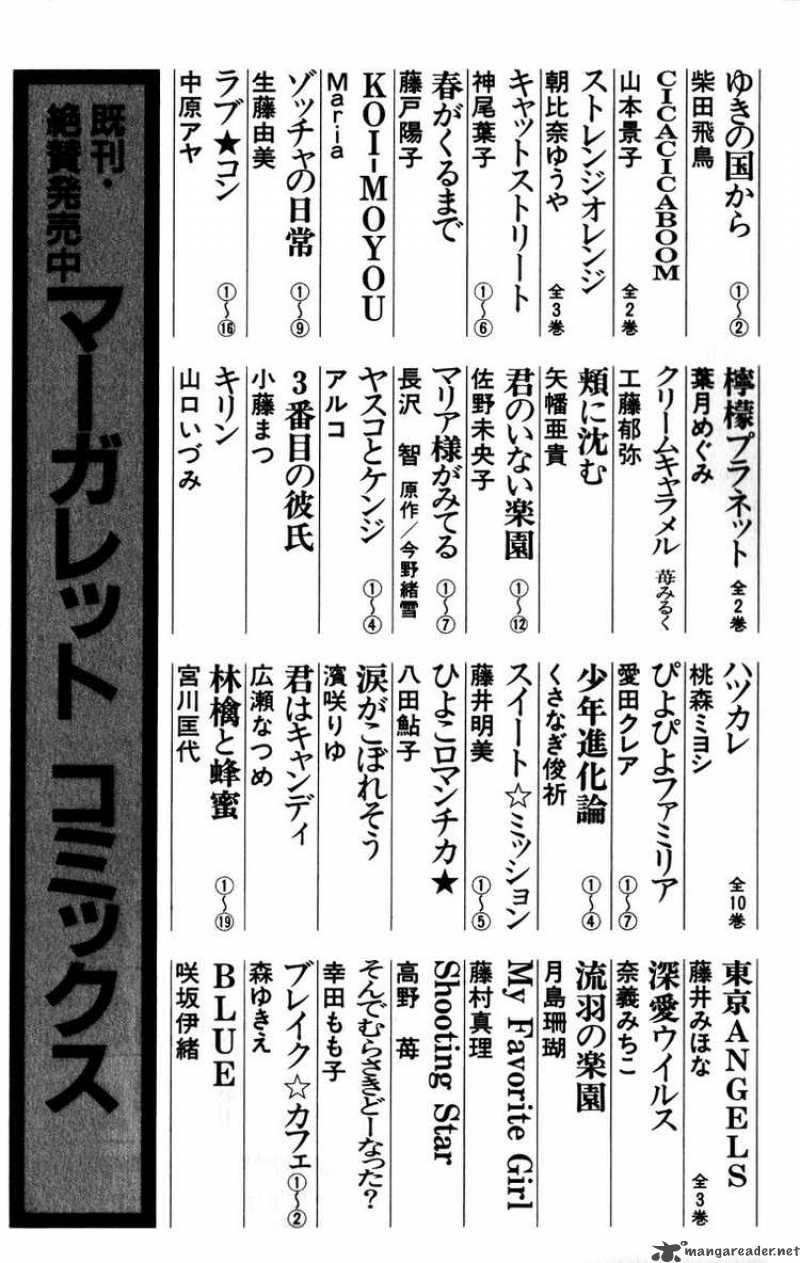 ゆきの国から ①〜②
柴田飛鳥
CICACICABOOM
山本景子 全2巻
ストレンジオレンジ
朝比奈ゆうや 全3巻
キャットストリート
神尾葉子 ①〜⑥
春がくるまで
藤戸陽子
KOI-MOYOU
Maria
ゾッチャの日常 ①〜⑨
生藤由美
ラブ★コン ①〜⑯
中原アヤ
檸檬プラネット 全2巻
葉月めぐみ
クリームキャラメル 苺みるく
工藤郁弥
頬に沈む
矢幡亜貴
君のいない楽園 ①〜⑫
佐野未央子
マリア様がみてる ①〜⑦
長沢 智 原作/今野緒雪
ヤスコとケンジ ①〜④
アルコ
3番目の彼氏
小藤まつ
キリン
山口いづみ
ハツカレ 全10巻
桃森ミヨシ
ぴよぴよファミリア ①〜⑦
愛田クレア
少年進化論 ①〜④
くさなぎ俊祈
スイート☆ミッション ①〜⑤
藤井明美
ひよこロマンチカ★
八田鮎子
涙がこぼれそう
濱咲りゆ
君はキャンディ
広瀬なつめ
林檎と蜂蜜 ①〜⑲
宮川匡代
東京ANGELS
藤井みほな 全3巻
深愛ウイルス
奈義みちこ
流羽の楽園
月島珊瑚
My Favorite Girl
藤村真理
Shooting Star
高野 苺
そんでむらさきどーなった?
幸田もも子
ブレイク☆カフェ ①〜②
森ゆきえ
BLUE
咲坂伊緒
既刊・絶賛発売中
マーガレット コミックス
mangareader.net